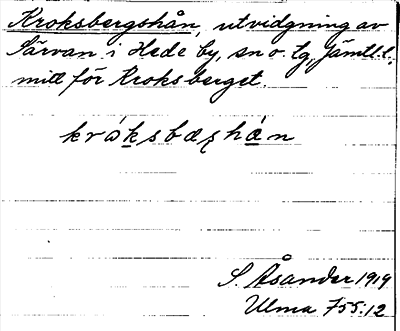 Kroksbergshån, utvidgning av
Särvan i Hede by, sn o. tg, Jämtl. l.,
mitt för Kroksberget.
krȧksbæʂhȧn
S. Åsander 1919
Ulma 755:12